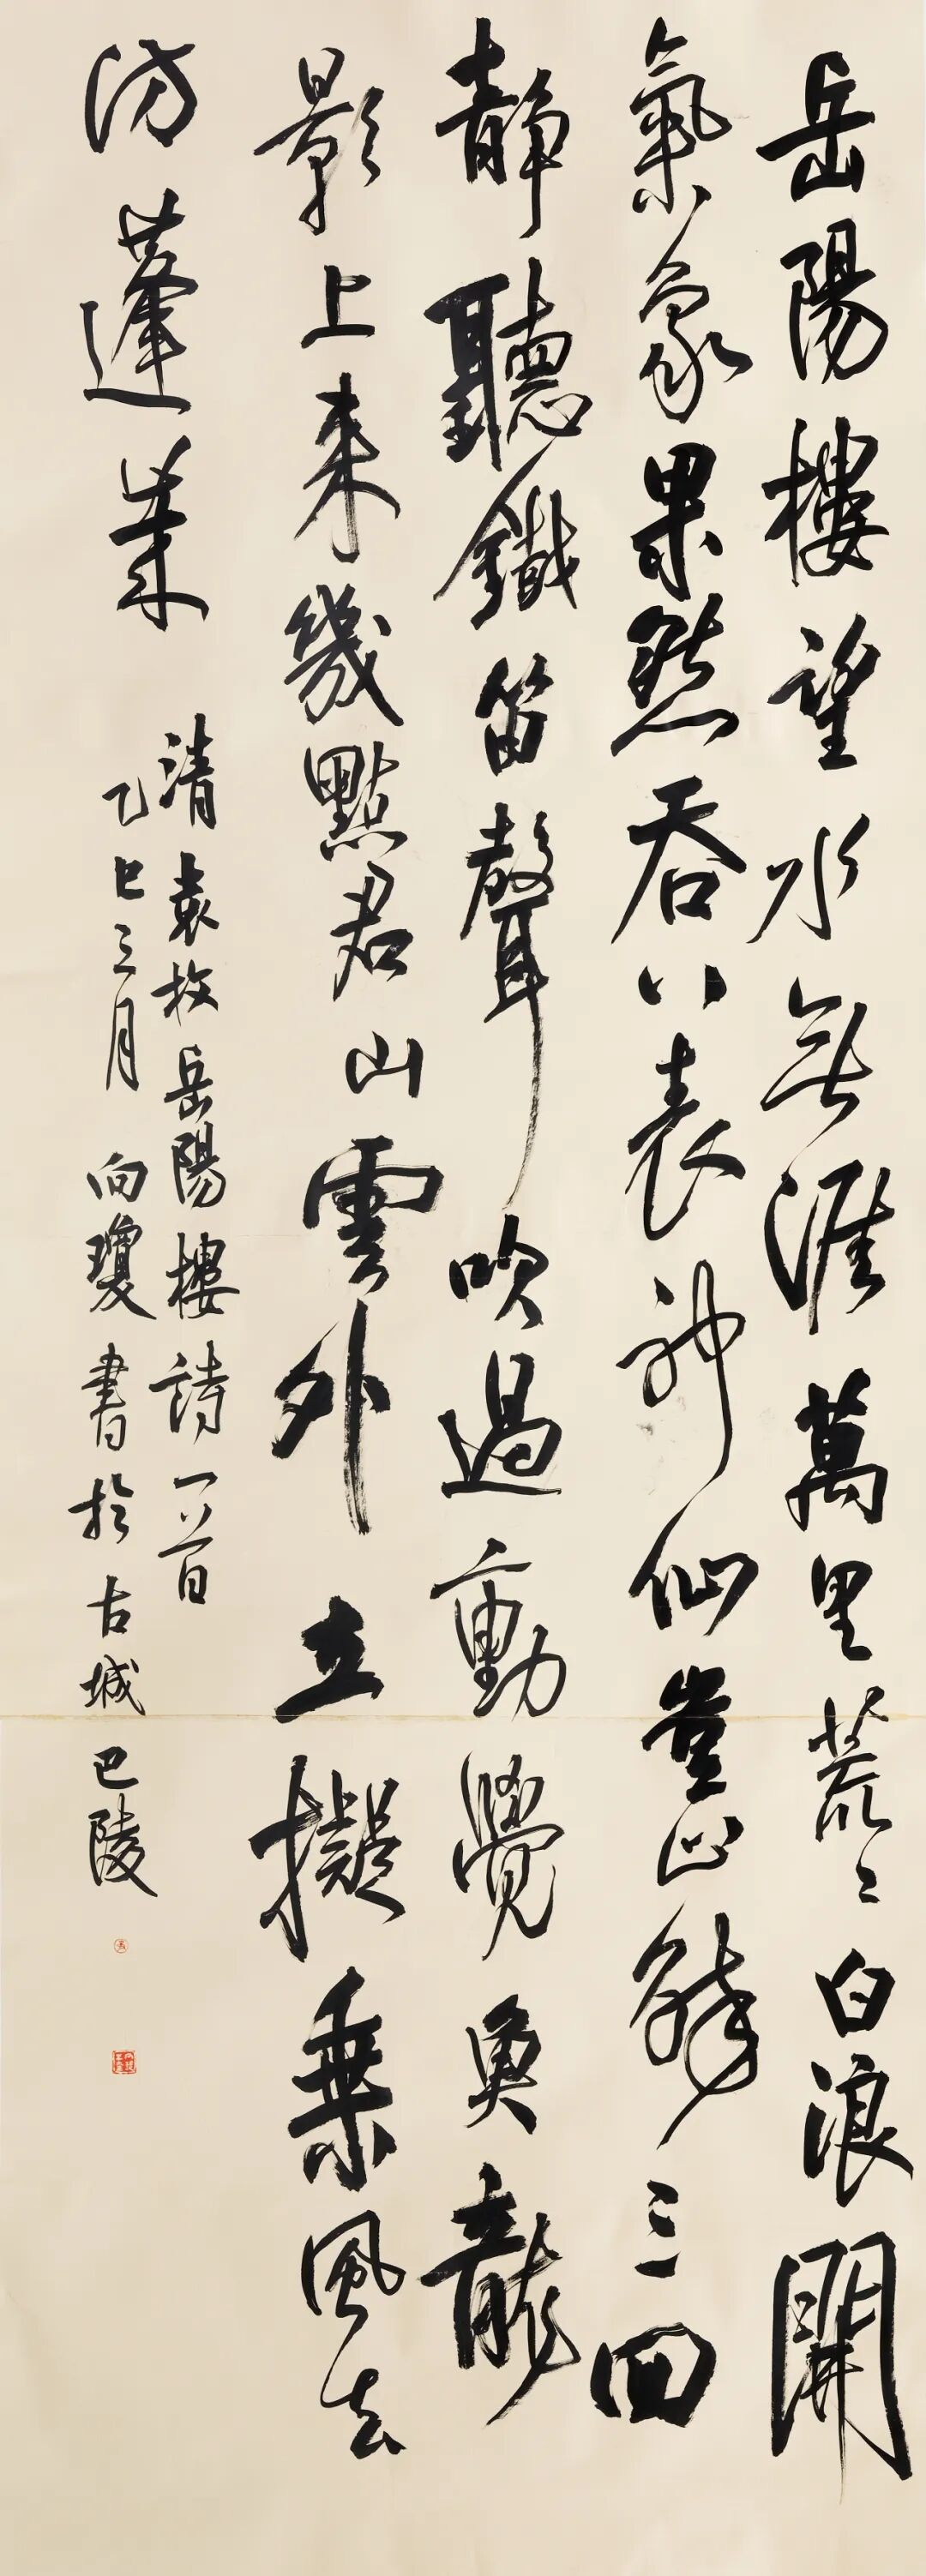 岳陽樓望水無涯萬里荒〻白浪開
氣象果然吞八表神仙豈止醉三回
静聽鐵笛聲吹過動覺魚龍
影上来幾點君山雲外立擬乗風去
訪蓬莱
清袁枚岳陽樓詩一首
乙巳三月 向瓊書於古城巴陵